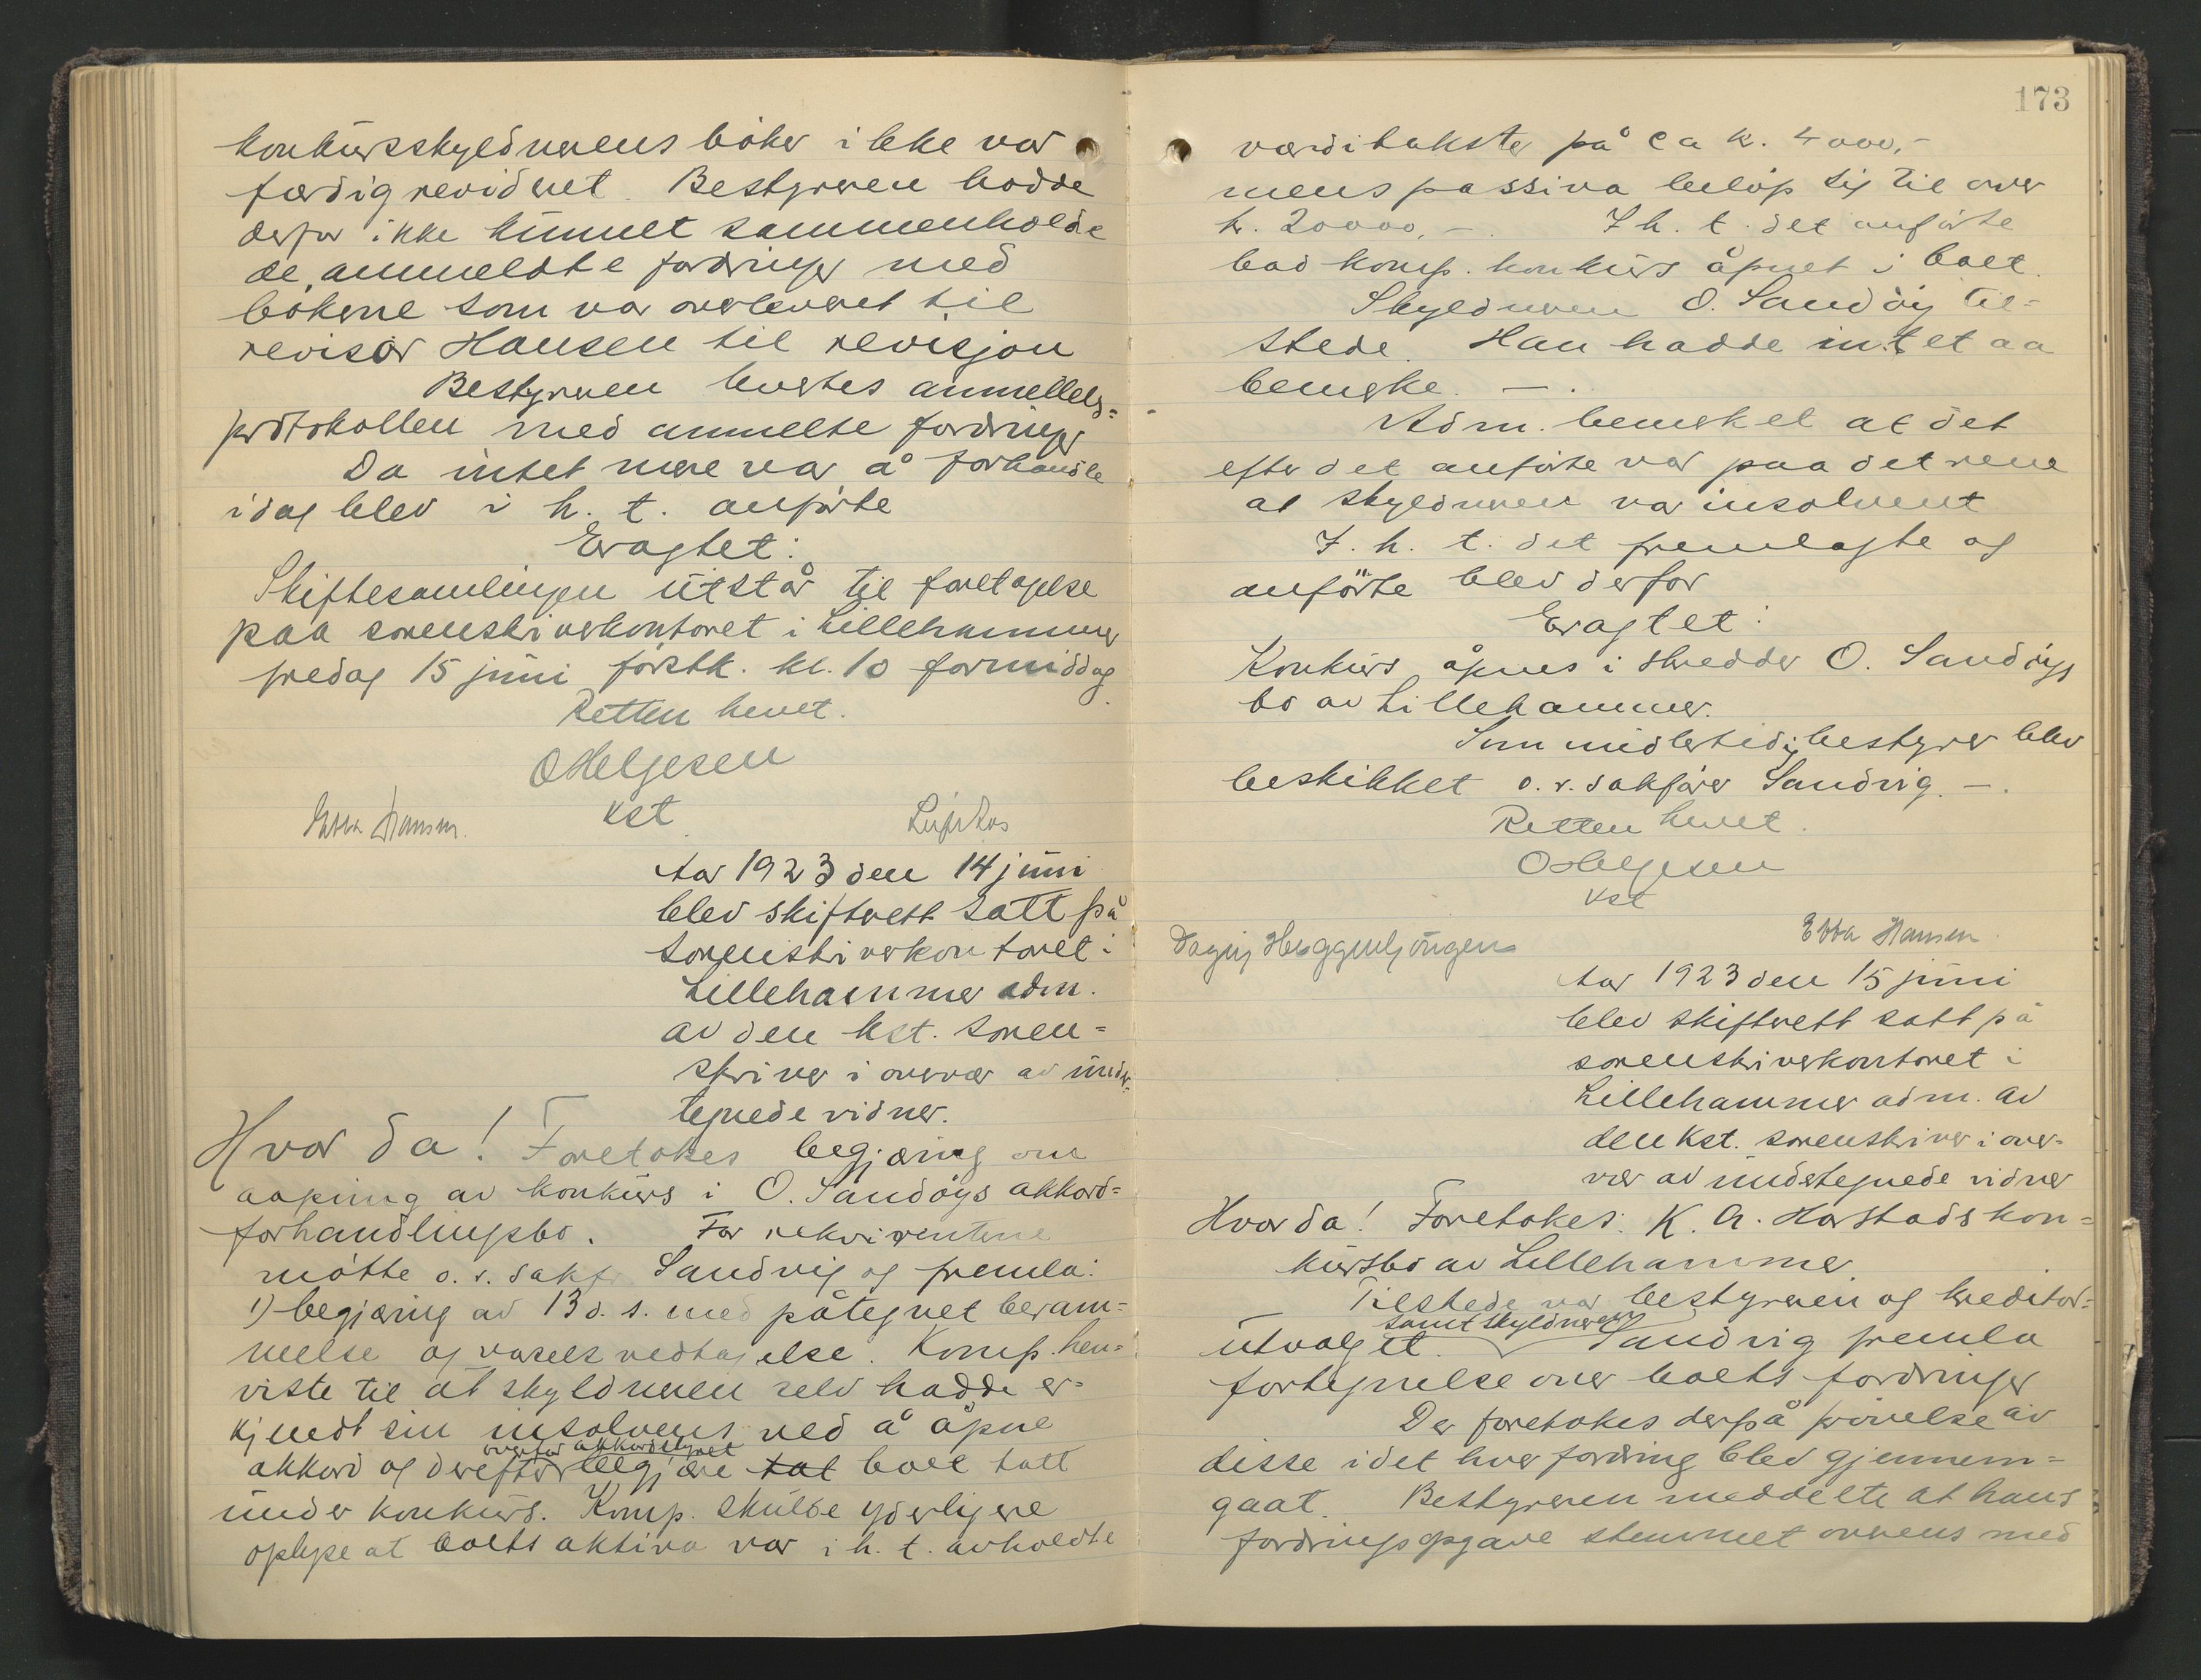 konkursskyldnerens bøker ikke var
færdig revideret. Bestyreren hadde
derfor ikke kunnet sammenholde
de anmeldte fordringer med
bøkene som var overleveret til
revisor Hansen til revisjon
Bestyreren leverte anmeldels=
protokollen med anmeldte fordringer
Da intet mere var å forhandle
idag blev i h. t. anførte
Eragtet:
Skiftesamlingen utstår til foretagelse
paa sorenskriverkontoret i Lillehammer
fredag 15 juni førstk. kl. 10 formiddag.
Retten hevet.
OHelgesen
kst
Ebba Hansen.
Aar 1923 den 14 juni
blev skifterett satt på
sorenskriverkontoret i
Lillehammer adm.
av den kst. soren=
skriver i overvær av under=
tegnede vidner.
Hvor da! Foretokes begjæring om
aapning av konkurs i O. Sandøys akkord=
forhandlingsbo. For rekvirentene
møtte o. r. sakf. Sandvig og fremla:
1) begjæring av 13 d. s. med påtegnet beram=
melse og varsels vedtagelse. Komp. hen=
viste til at skyldneren selv hadde er=
kjendt sin insolvens ved å åpne
akkord og derefter overfor akkordstyret begjære tat boet tatt
under konkurs. Komp. skulde yderligere
oplyse at boets aktiva var i h. t. avholdte
173
værditakster på ca k. 4000,-
mens passiva beløp sig til over
k. 20000,-. I h. t. det anførte
bad komp. konkurs åpnet i boet.
Skyldneren O. Sandøy til=
stede. Han hadde intet aa
bemerke. -.
Adm. bemerket at det
efter det anførte var paa det rene
at skyldneren var insolvent
I. h. t. det fremlagte og
anførte blev derfor
Eragtet:
Konkurs åpnes i skredder O. Sandøys
bo av Lillehammer.
Som midlertidig bestyrer blev
beskikket o. r. sakfører Sandvig. -.
Retten hevet.
OHelgesen
kst
Ebba Hansen.
Aar 1923 den 15 juni
blev skifterett satt på
sorenskriverkontoret i
Lillehammer adm. av
den kst. sorenskriver i over=
vær av undertegnede vidner
Hvor da! Foretokes: K. A. Harstads kon=
kursbo av Lillehammer.
Tilstede var bestyreren og kreditor=
utvalget samt skyldneren. Sandvig fremla
fortegnelse over boets fordringer
Der foretokes derpå prøvelse av
disse idet hver fordring blev gjennem=
gaat. Bestyreren meddelte at hans
fordringsopgave stemmet overens med